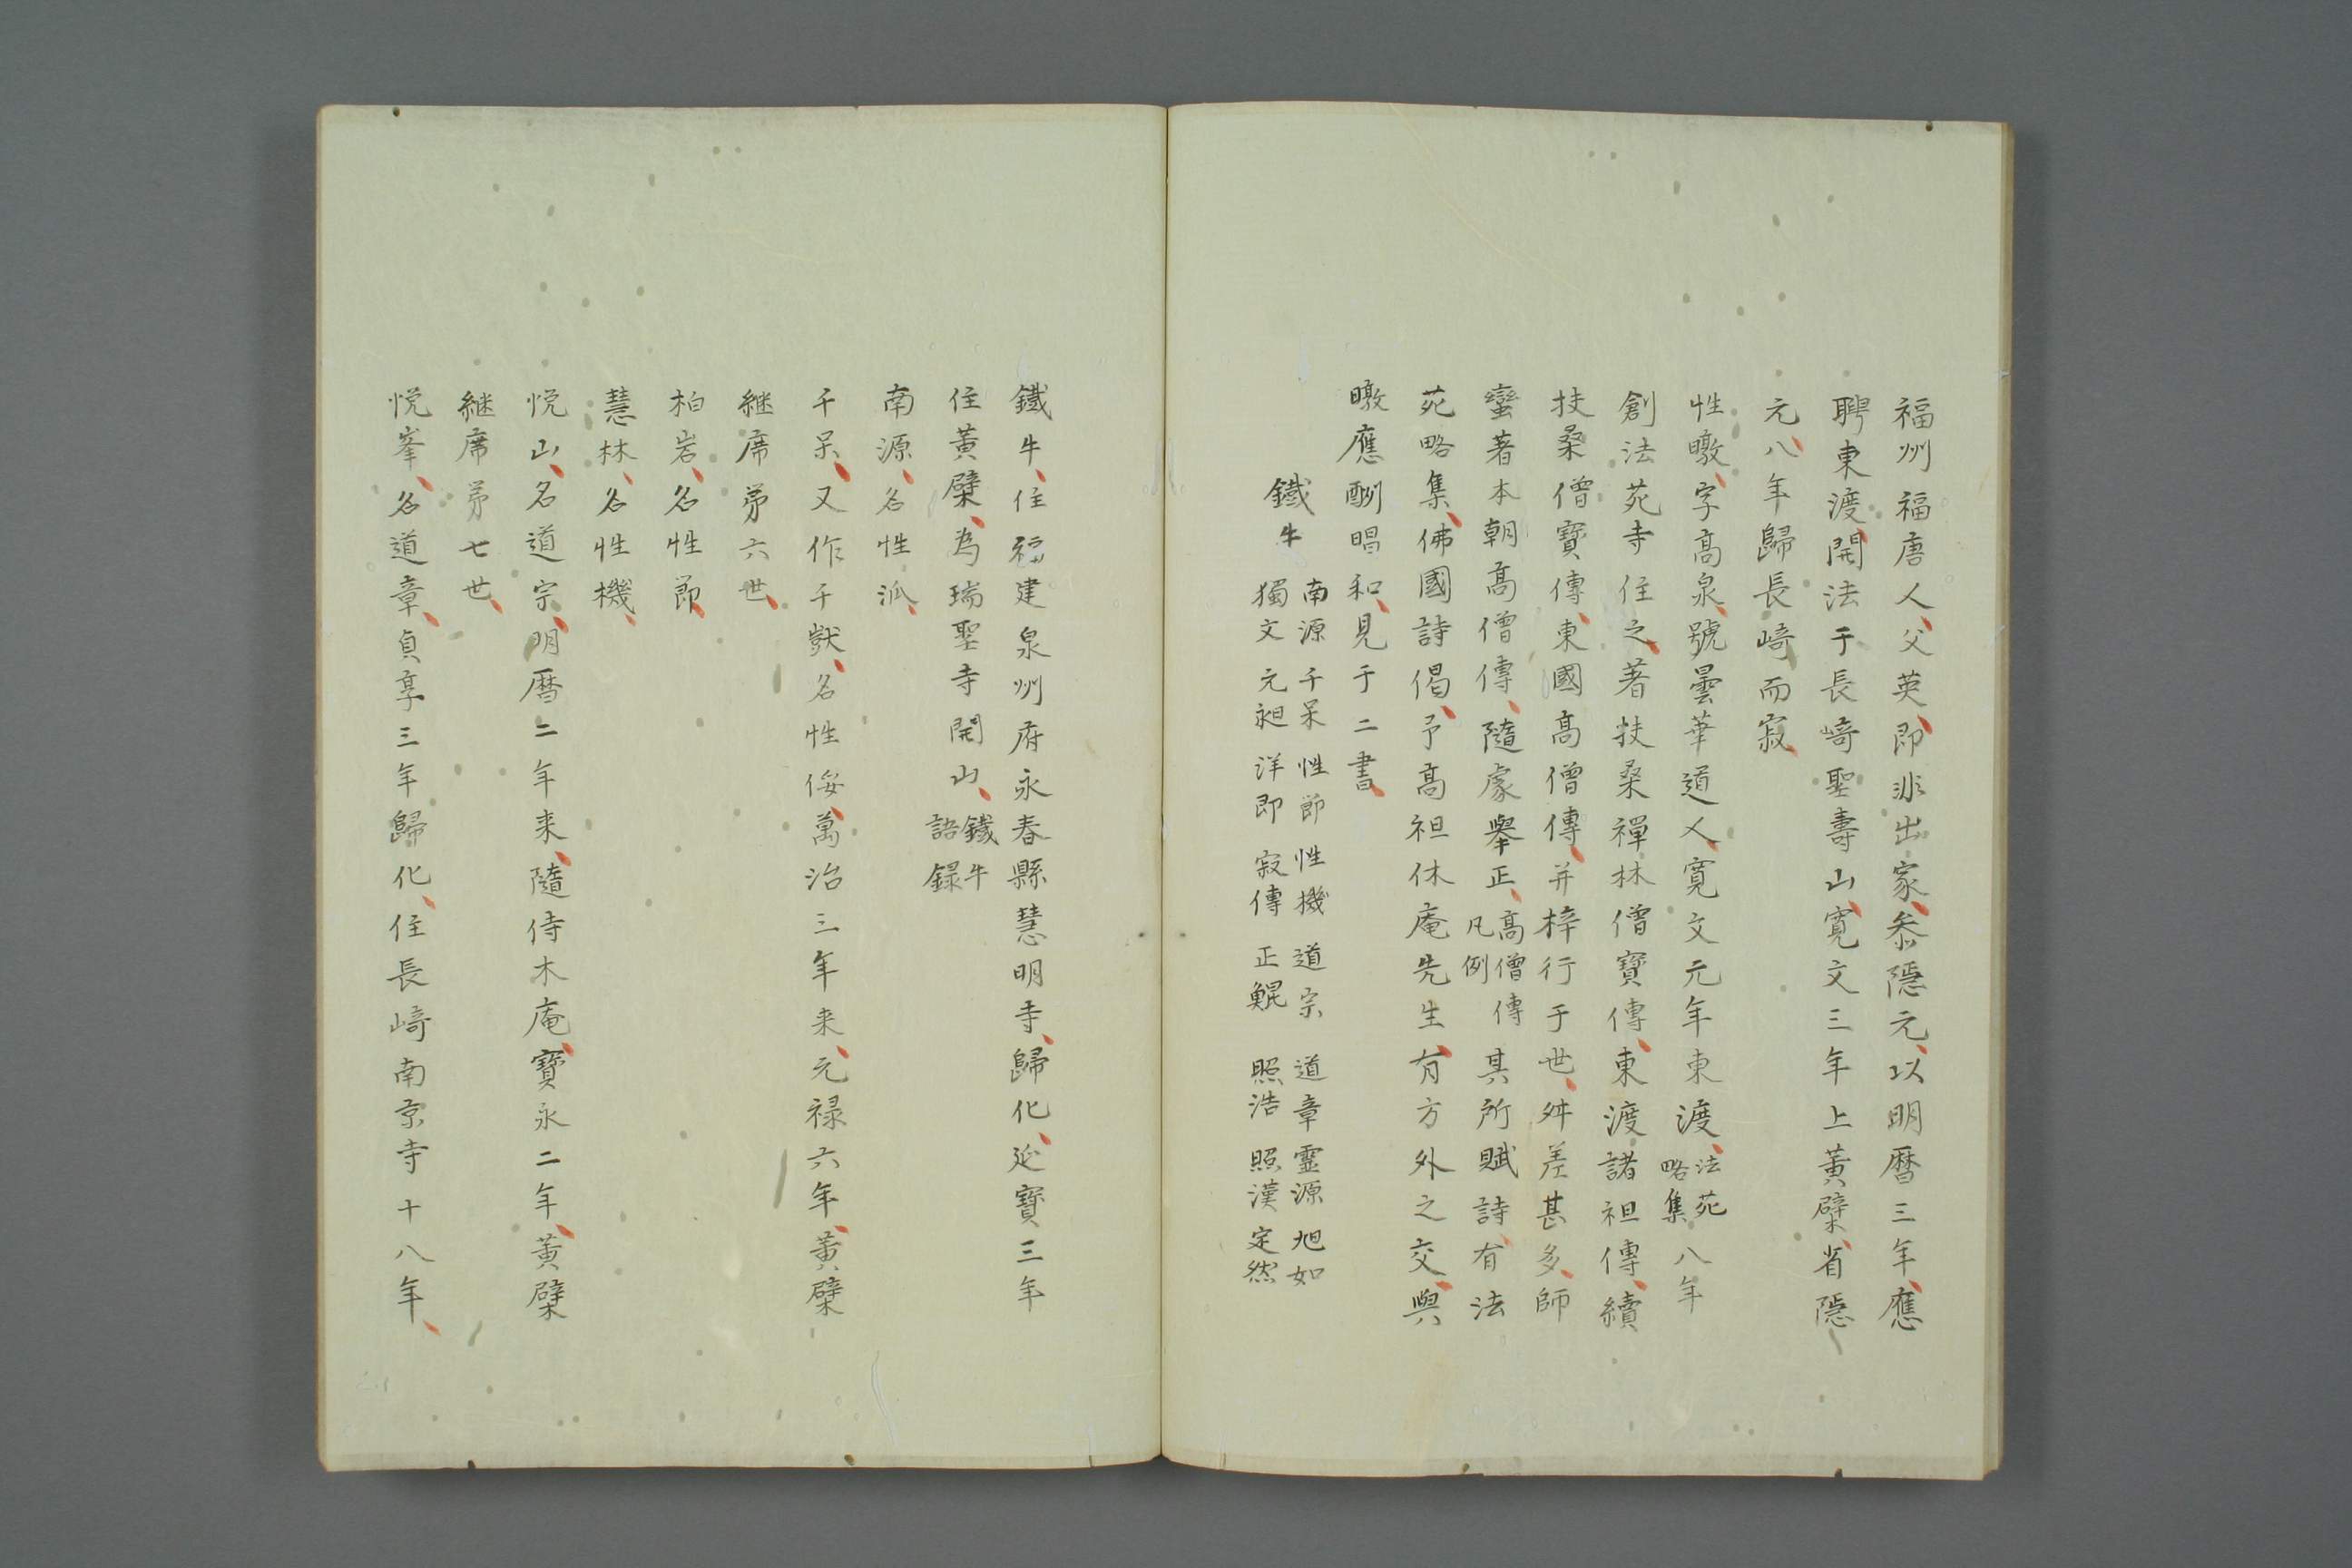 福州福唐人、父英、即非出家、参隠元、以明暦三年、應
聘東渡、開法于長﨑聖壽山、寛文三年上黄檗、省隠
元、八年歸長﨑而寂、
性暾、字高泉、號曇華道人、寛文元年東渡、法苑略集八年
創法苑寺住之、著扶桑禪林僧寶傳、東渡諸祖傳、續
扶桑僧寶傳、東國高僧傳、并梓行于世、舛差甚多、師
蠻著本朝高僧傳、隨處舉正、高僧傳凡例其所賦詩、有法
苑略集、佛國詩偈、予高祖休庵先生、有方外之交、與
暾應酬唱和、見于二書、
鐵牛
南源 千呆 性節 性機 道宗 道章 靈源 旭如
獨文 元昶 洋即 寂傳 正鯤 照浩 照漢 定然
鐵牛、住福建泉州府永春縣慧明寺、歸化、延寶三年
住黄檗、為瑞聖寺開山、鐵牛語録
南源、名性派、
千呆、又作千獃、名性侒、萬治三年来、元禄六年、黄檗
継席第六世、
柏岩、名性節、
慧林、名性機、
悦山、名道宗、明暦二年来、隨侍木庵、寶永二年、黄檗
継席第七世、
悦峯、名道章、貞享三年歸化、住長﨑南京寺十八年、